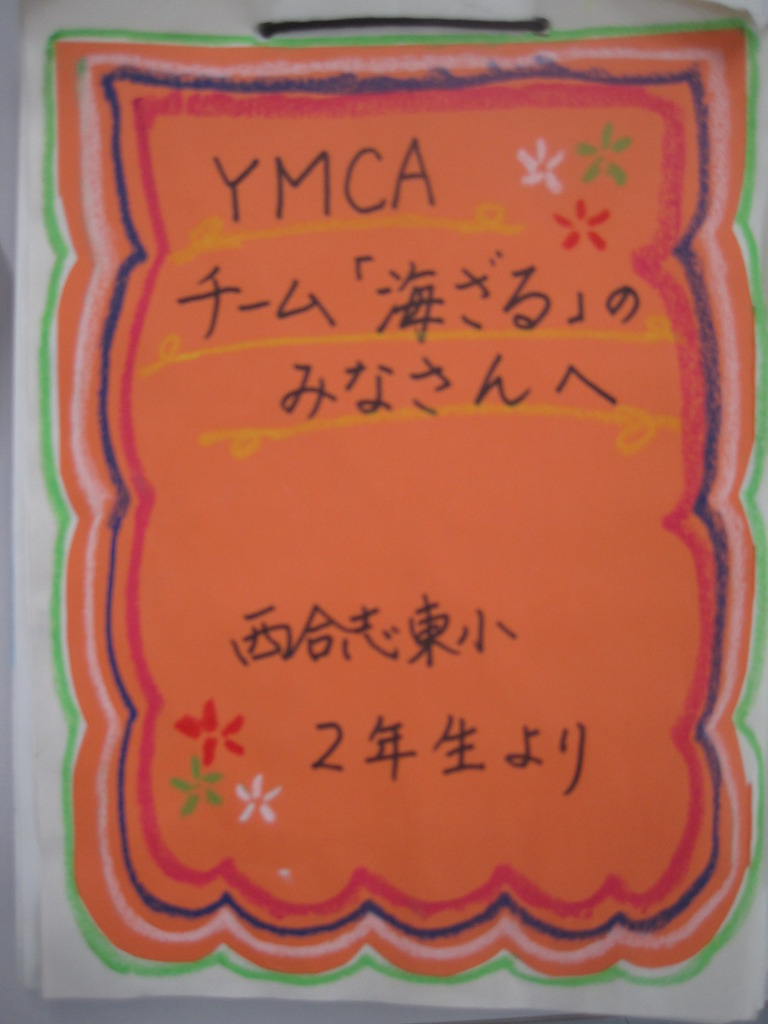 YMCA
チーム「海ざる」の
みなさんへ
西合志東小
2年生より